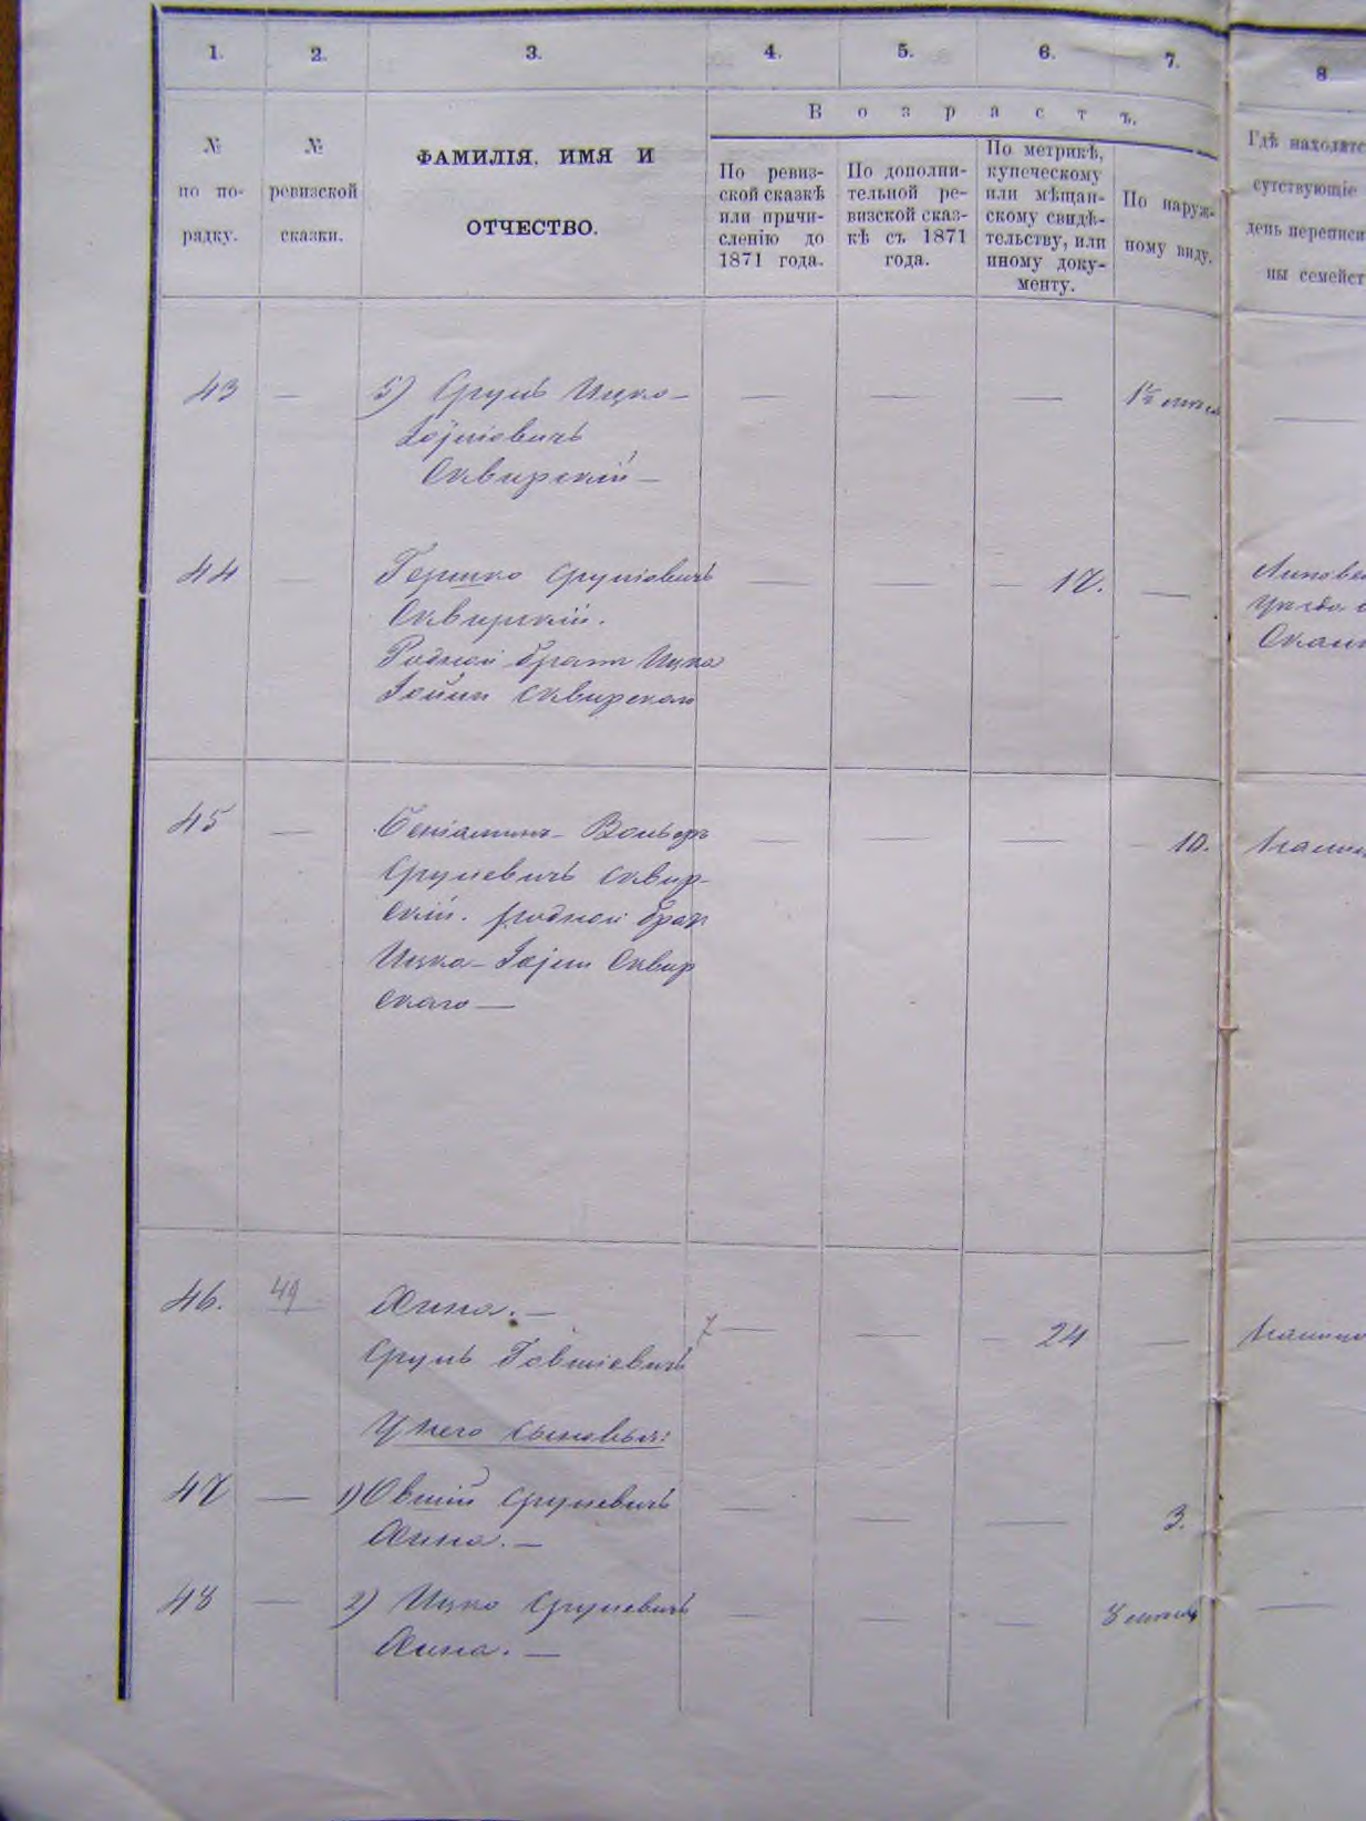 1. 2. 3. 4. 5. 6. 7. 8
Возрастъ.
№ по по-
рядку.
№
ревизской
сказки.
ФАМИЛІЯ, ИМЯ И
ОТЧЕСТВО.
По ревиз-
ской сказкѣ
или причи-
сленію до
1871 года.
По дополни-
тельной ре-
визской сказ-
кѣ съ 1871
года.
По метрикѣ,
купеческому
или мѣщан-
скому свидѣ-
тельству, или
иному доку-
менту.
По наруж-
ному виду.
Гдѣ находятс
сутствующіе
день переписи
ны семейст
43 — 5) Сруль Ицко- — — —
Іойніовичъ
Сквирскій —
44 — Гершко Сруліовичъ — — — 17. —
Сквирскій.
Родной братъ Ицка
Іойни Сквирскаго
45 — Беніаминъ-Вольфъ — — — 10.
Срулевичъ Сквир-
скій. родной брат
Ицка-Іойни Сквир
скаго —
46. 49 Хина. — — — 24 —
Сруль Говшіевичъ
У него сыновья:
47 — 1) Овшій Срулевичъ — — — 3.
Хина. —
48 — 2) Ицко Срулевичъ — — —
Хина. —